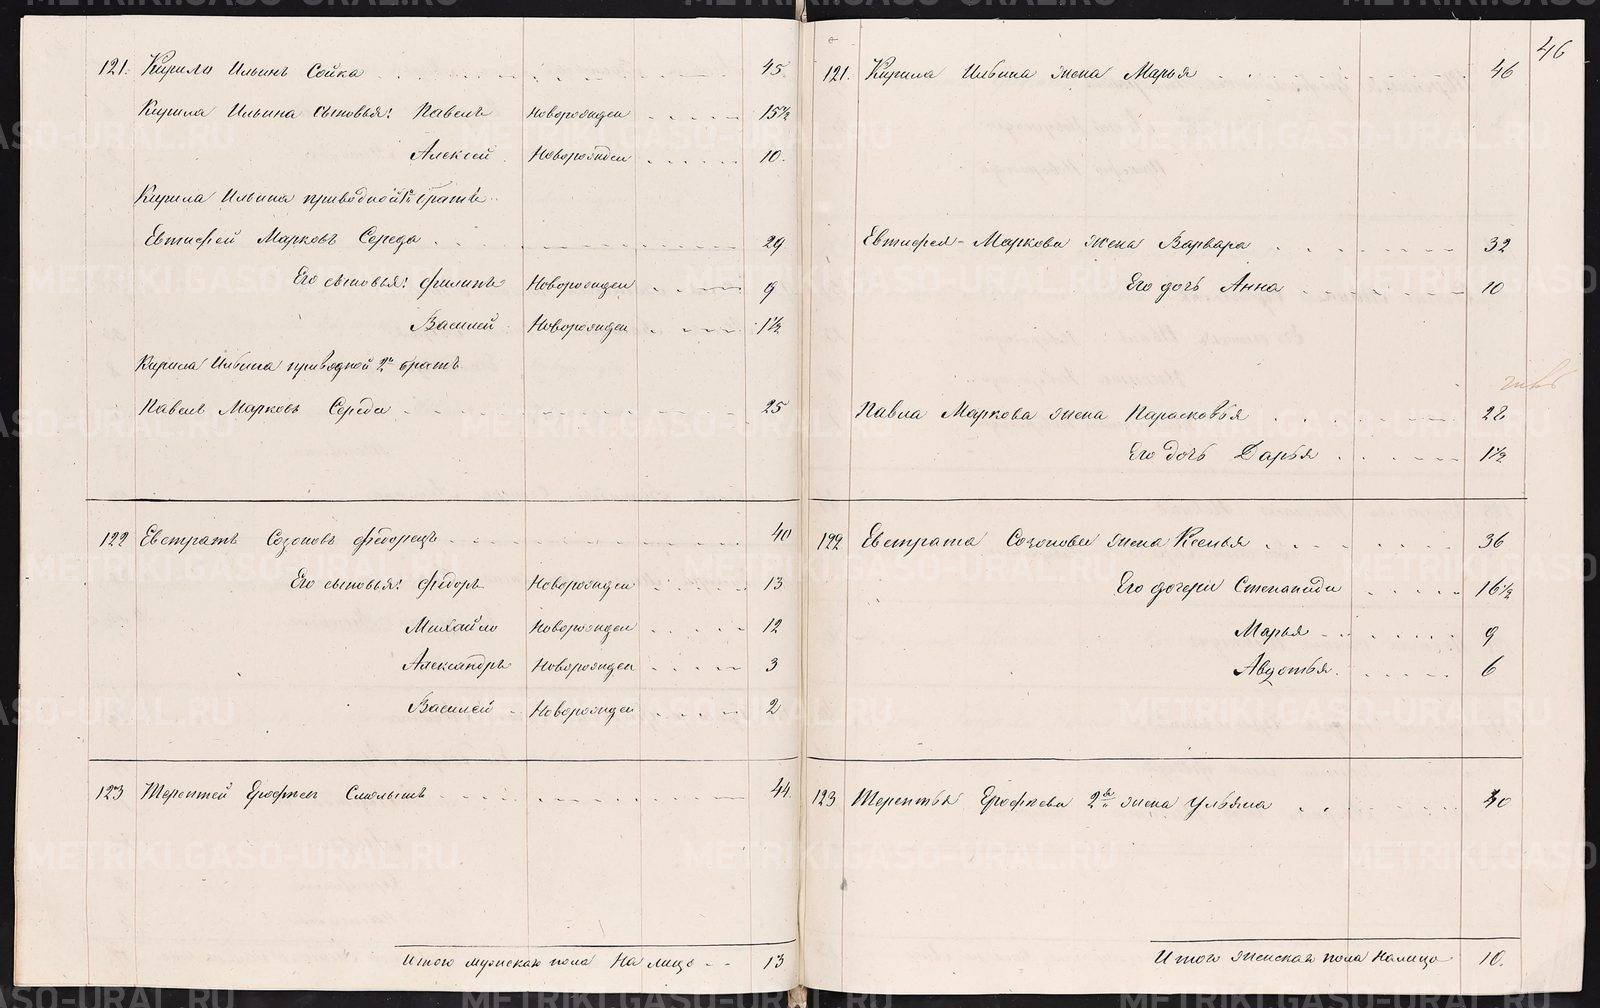 46
121. Кирило Ильинъ Сойка 45.
Кирила Ильина сыновья: Павелъ Новорожден 15½
Алексей Новорожден 10.
Кирила Ильина приводной 1й братъ
Евтифей Марковъ Середа 29
Его сыновья: Филипъ Новорожден 9
Василей Новорожден 1½
Кирила Ильина приводной 2й братъ
Павелъ Марковъ Середа 25
122 Евстратъ Созоновъ Федорецъ 40
Его сыновья: Федоръ Новорожден 13
Михайло Новорожден 12
Александръ Новорожден 3
Василей Новорожден 2
123 Терентей Ерофеевъ 44
Итого мужеска пола на лицо 13
121. Кирила Ильина жена Марья 46
Евтифея Маркова жена Варвара 32
Его дочь Анна 10
Павла Маркова жена Парасковья 28
Его дочь Дарья 1½
122 Евстрата Созонова жена Ксенья 36
Его дочери Степанида 16½
Марья 9
Авдотья 6
123 Терентья Ерофеева 2я жена Ульяна 40
Итого женска пола налицо 10.
METRIKI.GASO-URAL.RU